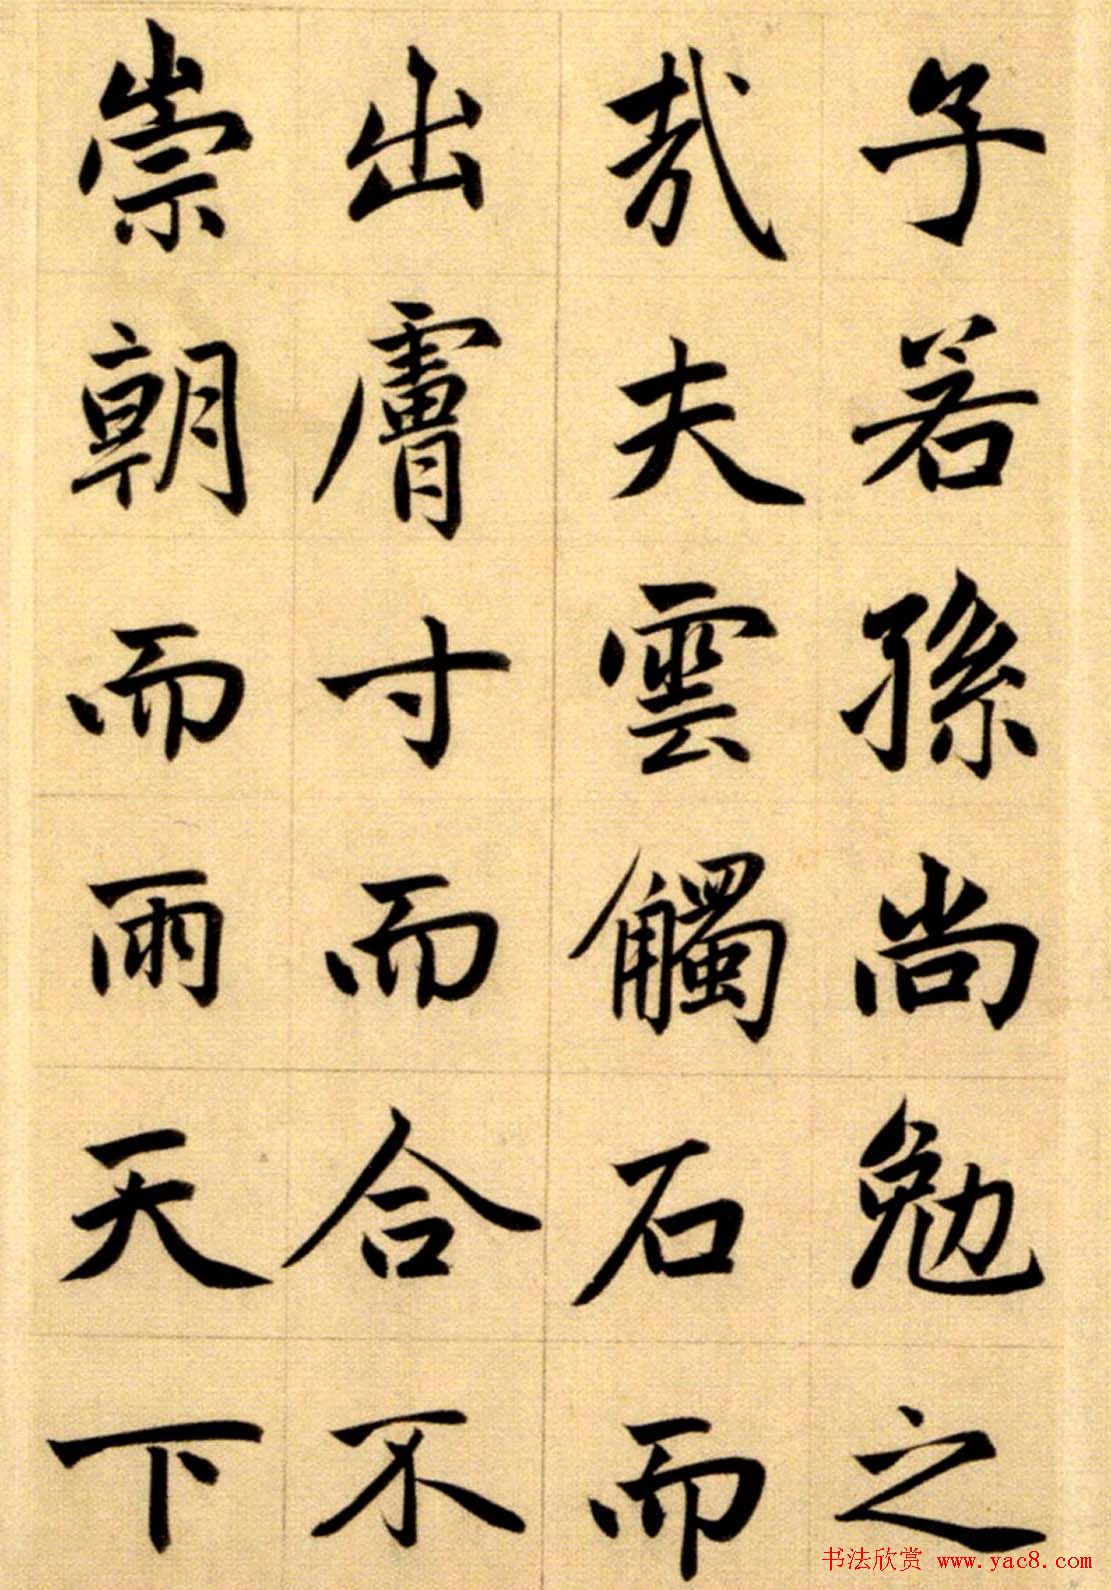 子若孫尚勉之
哉夫雲觸石而
出膚寸而合不
崇朝而雨天下
书法欣赏 www.yac8.com